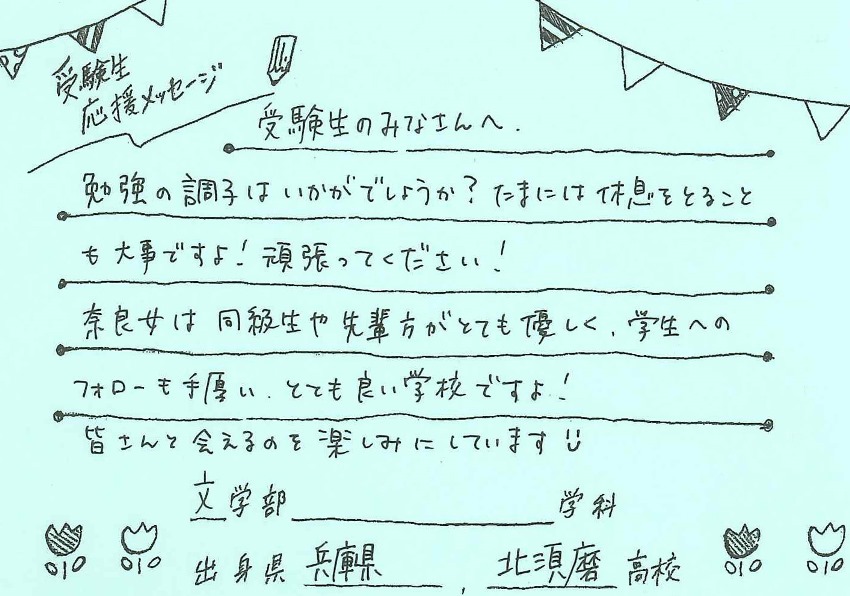 受験生
応援メッセージ
受験生のみなさんへ.
勉強の調子はいかがでしょうか?たまには休息をとること
も大事ですよ!頑張ってください!
奈良女は同級生や先輩方がとても優しく、学生への
フォローも手厚い、とても良い学校ですよ!
皆さんと会えるのを楽しみにしています
文学部 学科
出身県 兵庫県 , 北須磨高校